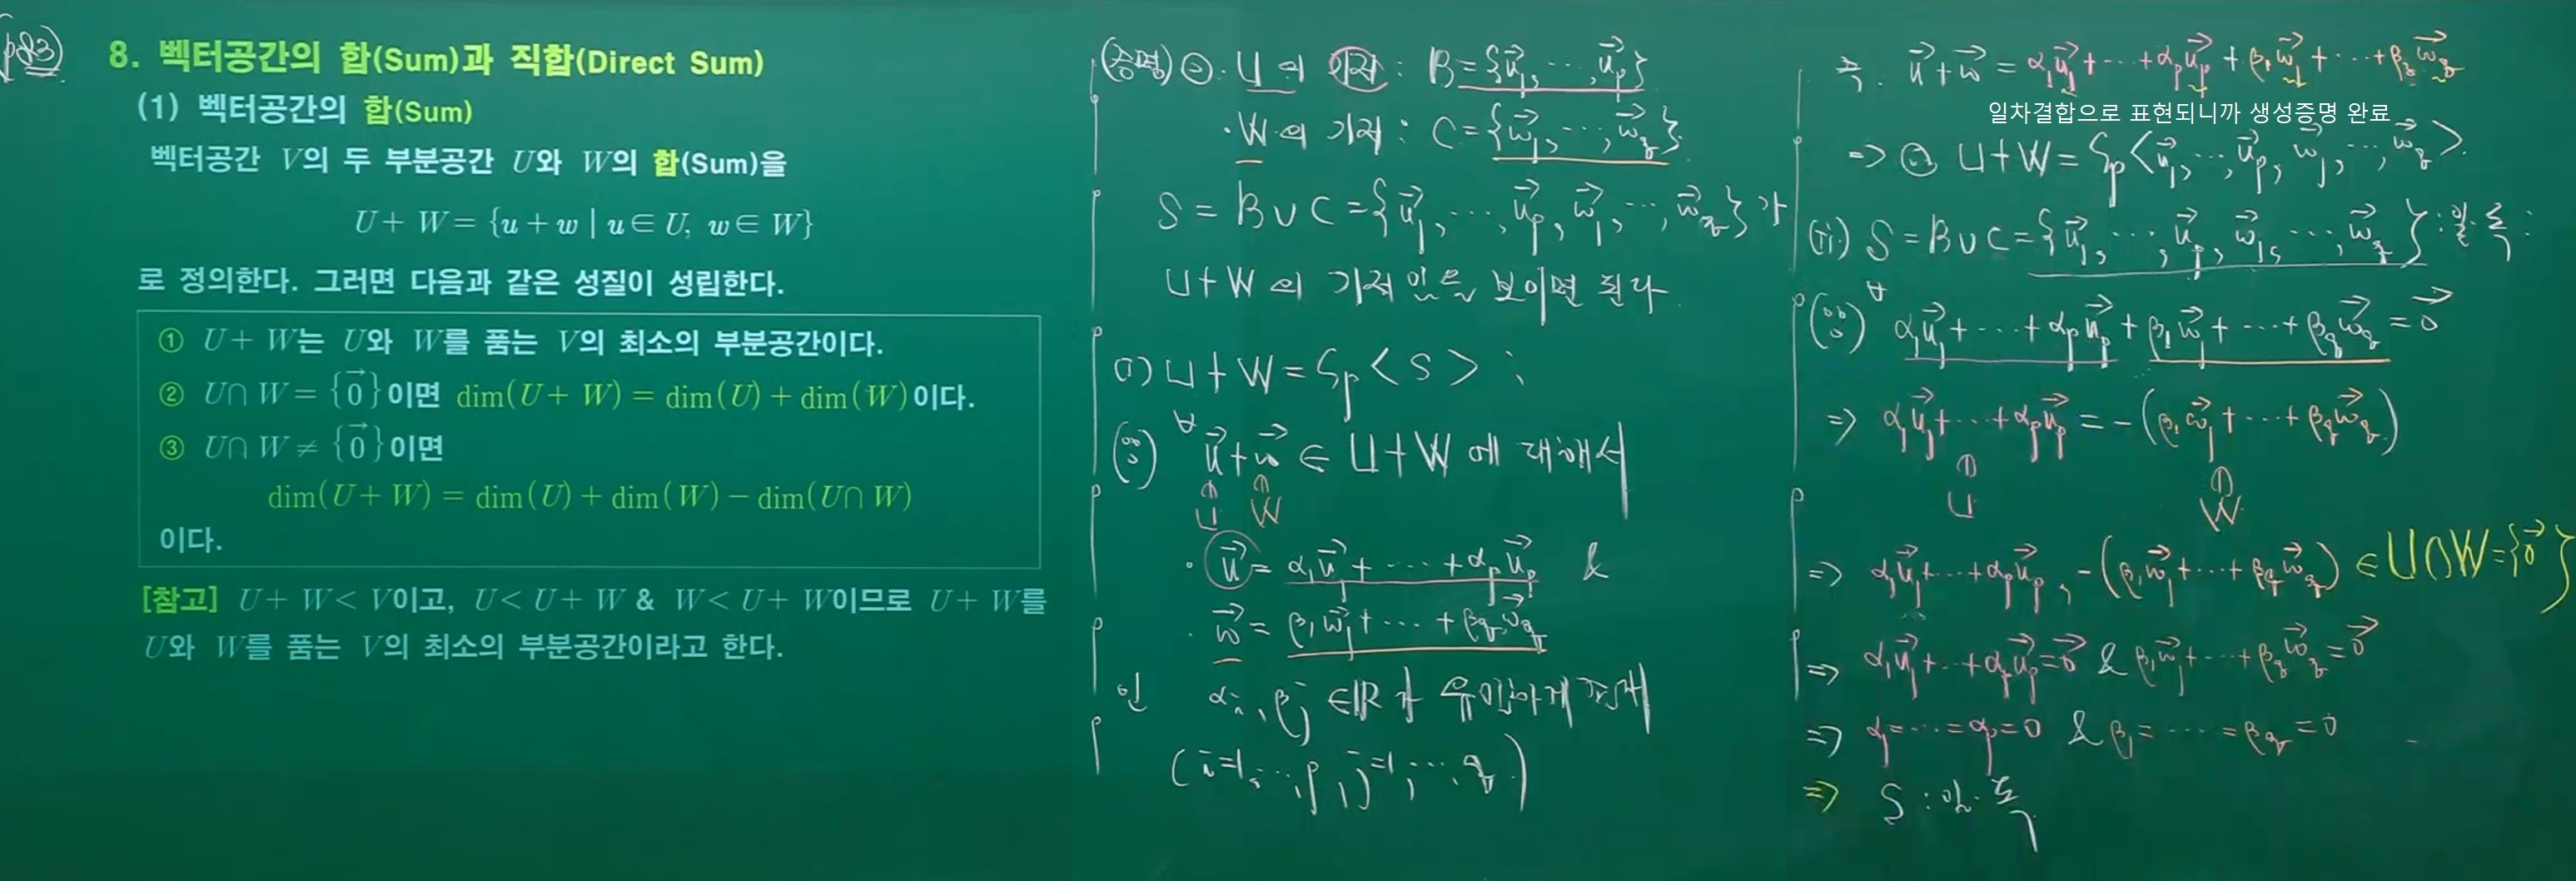 p83
8. 벡터공간의 합(Sum)과 직합(Direct Sum)
(1) 벡터공간의 합(Sum)
벡터공간 V의 두 부분공간 U와 W의 합(Sum)을
U + W = {u + w | u ∈ U, w ∈ W}
로 정의한다. 그러면 다음과 같은 성질이 성립한다.
① U + W는 U와 W를 품는 V의 최소의 부분공간이다.
② U∩W = {0⃗}이면 dim(U + W) = dim(U) + dim(W)이다.
③ U∩W ≠ {0⃗}이면
dim(U + W) = dim(U) + dim(W) − dim(U∩W)
이다.
[참고] U + W < V이고, U < U + W & W < U + W이므로 U + W를
U와 W를 품는 V의 최소의 부분공간이라고 한다.
(증명) ②. U의 기저 : B = {u⃗₁, ⋯, u⃗ₚ}
· W의 기저 : C = {w⃗₁, ⋯, w⃗_q}.
S = B∪C = {u⃗₁, ⋯, u⃗ₚ, w⃗₁, ⋯, w⃗_q}가
U+W의 기저임을 보이면 된다.
(i) U+W = Sp<S> ;
(∵) ∀u⃗+w⃗ ∈ U+W에 대해서
U W
· u⃗ = α₁u⃗₁ + ⋯ + αₚu⃗ₚ &
· w⃗ = β₁w⃗₁ + ⋯ + β_q w⃗_q
인 αᵢ, βⱼ ∈ ℝ가 유일하게 존재
(i=1, ⋯, p, j=1, ⋯, q)
즉. u⃗+w⃗ = α₁u⃗₁ + ⋯ + αₚu⃗ₚ + β₁w⃗₁ + ⋯ + β_q w⃗_q
일차결합으로 표현되니까 생성증명 완료
=> U+W = Sp<u⃗₁, ⋯, u⃗ₚ, w⃗₁, ⋯, w⃗_q>.
(ii) S = B∪C = {u⃗₁, ⋯, u⃗ₚ, w⃗₁, ⋯, w⃗_q} : 일.독 :
(∵) ∀ α₁u⃗₁ + ⋯ + αₚu⃗ₚ + β₁w⃗₁ + ⋯ + β_q w⃗_q = 0⃗
=> α₁u⃗₁ + ⋯ + αₚu⃗ₚ = −(β₁w⃗₁ + ⋯ + β_q w⃗_q)
U W
=> α₁u⃗₁ + ⋯ + αₚu⃗ₚ, −(β₁w⃗₁ + ⋯ + β_q w⃗_q) ∈ U∩W = {0⃗}
=> α₁u⃗₁ + ⋯ + αₚu⃗ₚ = 0⃗ & β₁w⃗₁ + ⋯ + β_q w⃗_q = 0⃗
=> α₁ = ⋯ = αₚ = 0 & β₁ = ⋯ = β_q = 0
=> S : 일.독